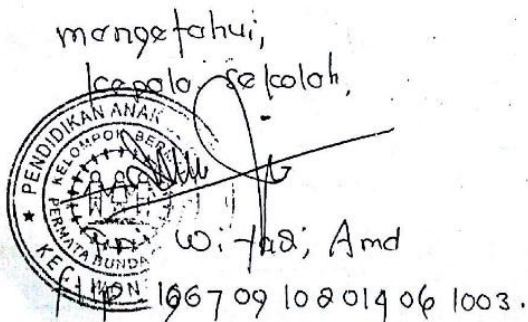 mengetahui,
kepala sekolah,
PENDIDIKAN ANAK
KELOMPOK BER
PERMATA BUNDA
Amd
NIP 19670910 201406 1003.